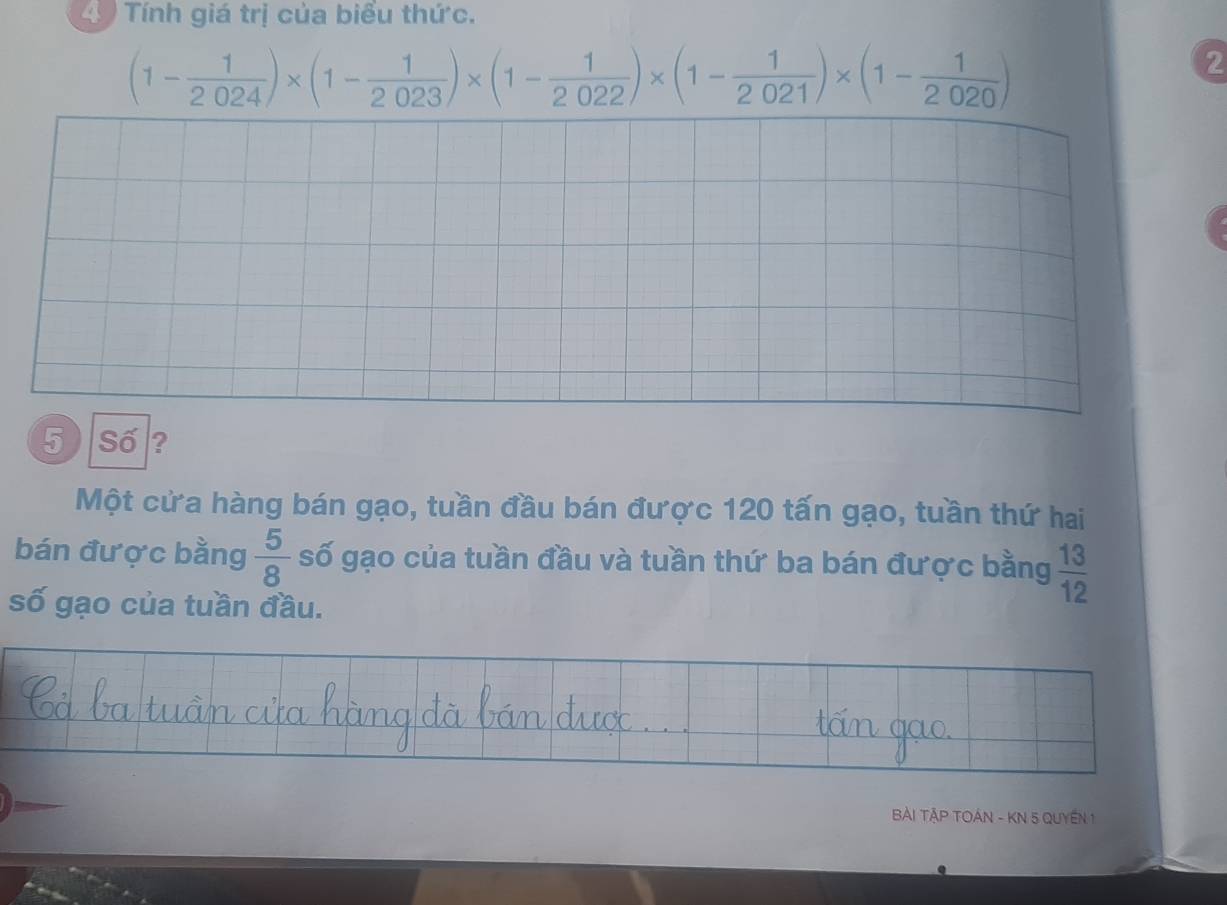 4 Tính giá trị của biểu thức.
(1 - 1/2 024) × (1 - 1/2 023) × (1 - 1/2 022) × (1 - 1/2 021) × (1 - 1/2 020)
2
5 Số ?
Một cửa hàng bán gạo, tuần đầu bán được 120 tấn gạo, tuần thứ hai
bán được bằng 5/8 số gạo của tuần đầu và tuần thứ ba bán được bằng 13/12
số gạo của tuần đầu.
Cả ba tuần cửa hàng đã bán được ... tấn gạo.
BÀI TẬP TOÁN - KN 5 QUYỂN 1